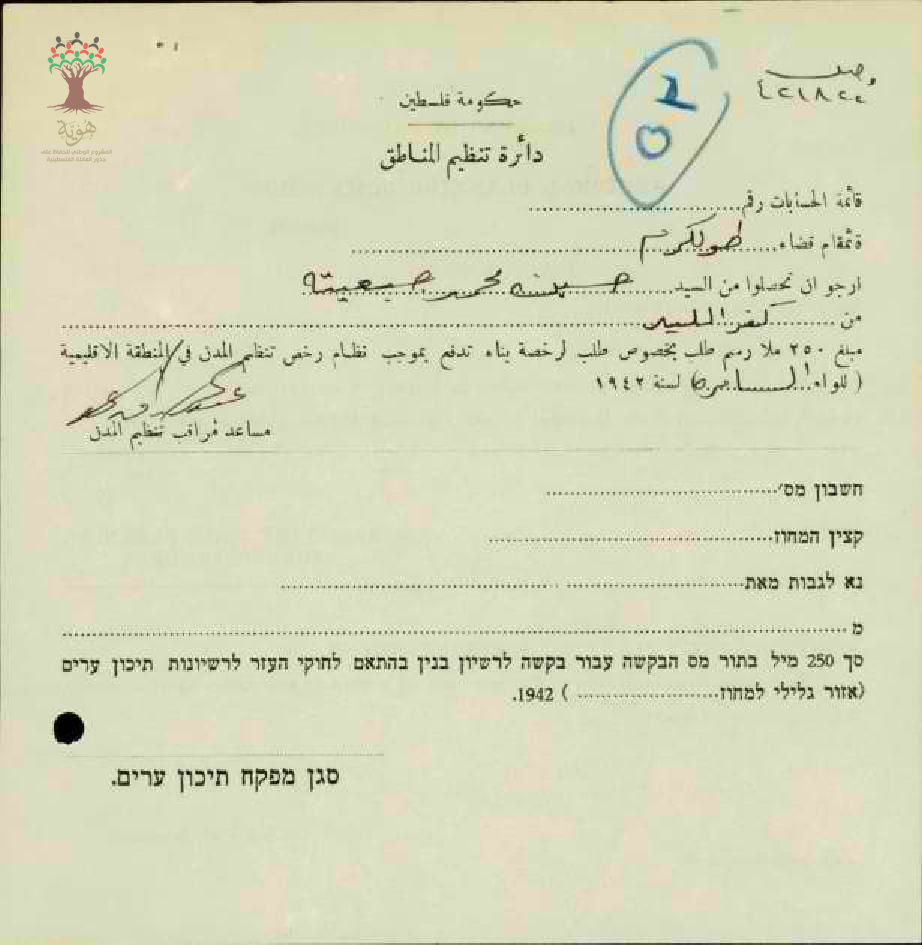 هوية
المشروع الوطني للحفاظ على
جذور العائلة الفلسطينية
وصل
حكومة فلسطين
دائرة تنظيم المناطق
قائمة الحسابات رقم
قائمقام قضاء طولكرم
ارجو ان تحصلوا من السيد محمد
من كفر اللبد
مبلغ ٢٥٠ ملا رسم طلب بخصوص طلب لرخصة بناء تدفع بموجب نظام رخص تنظيم المدن في المنطقة الاقليمية
( للواء السامرة) لسنة ١٩٤٢
مساعد مراقب تنظيم المدن
חשבון מס׳
קצין המחוז
נא לגבות מאת
מ
סך 250 מיל בתור מס הבקשה עבור בקשה לרשיון בנין בהתאם לחוקי העזר לרשיונות תיכון ערים
(אזור גלילי למחוז ) 1942.
סגן מפקח תיכון ערים.